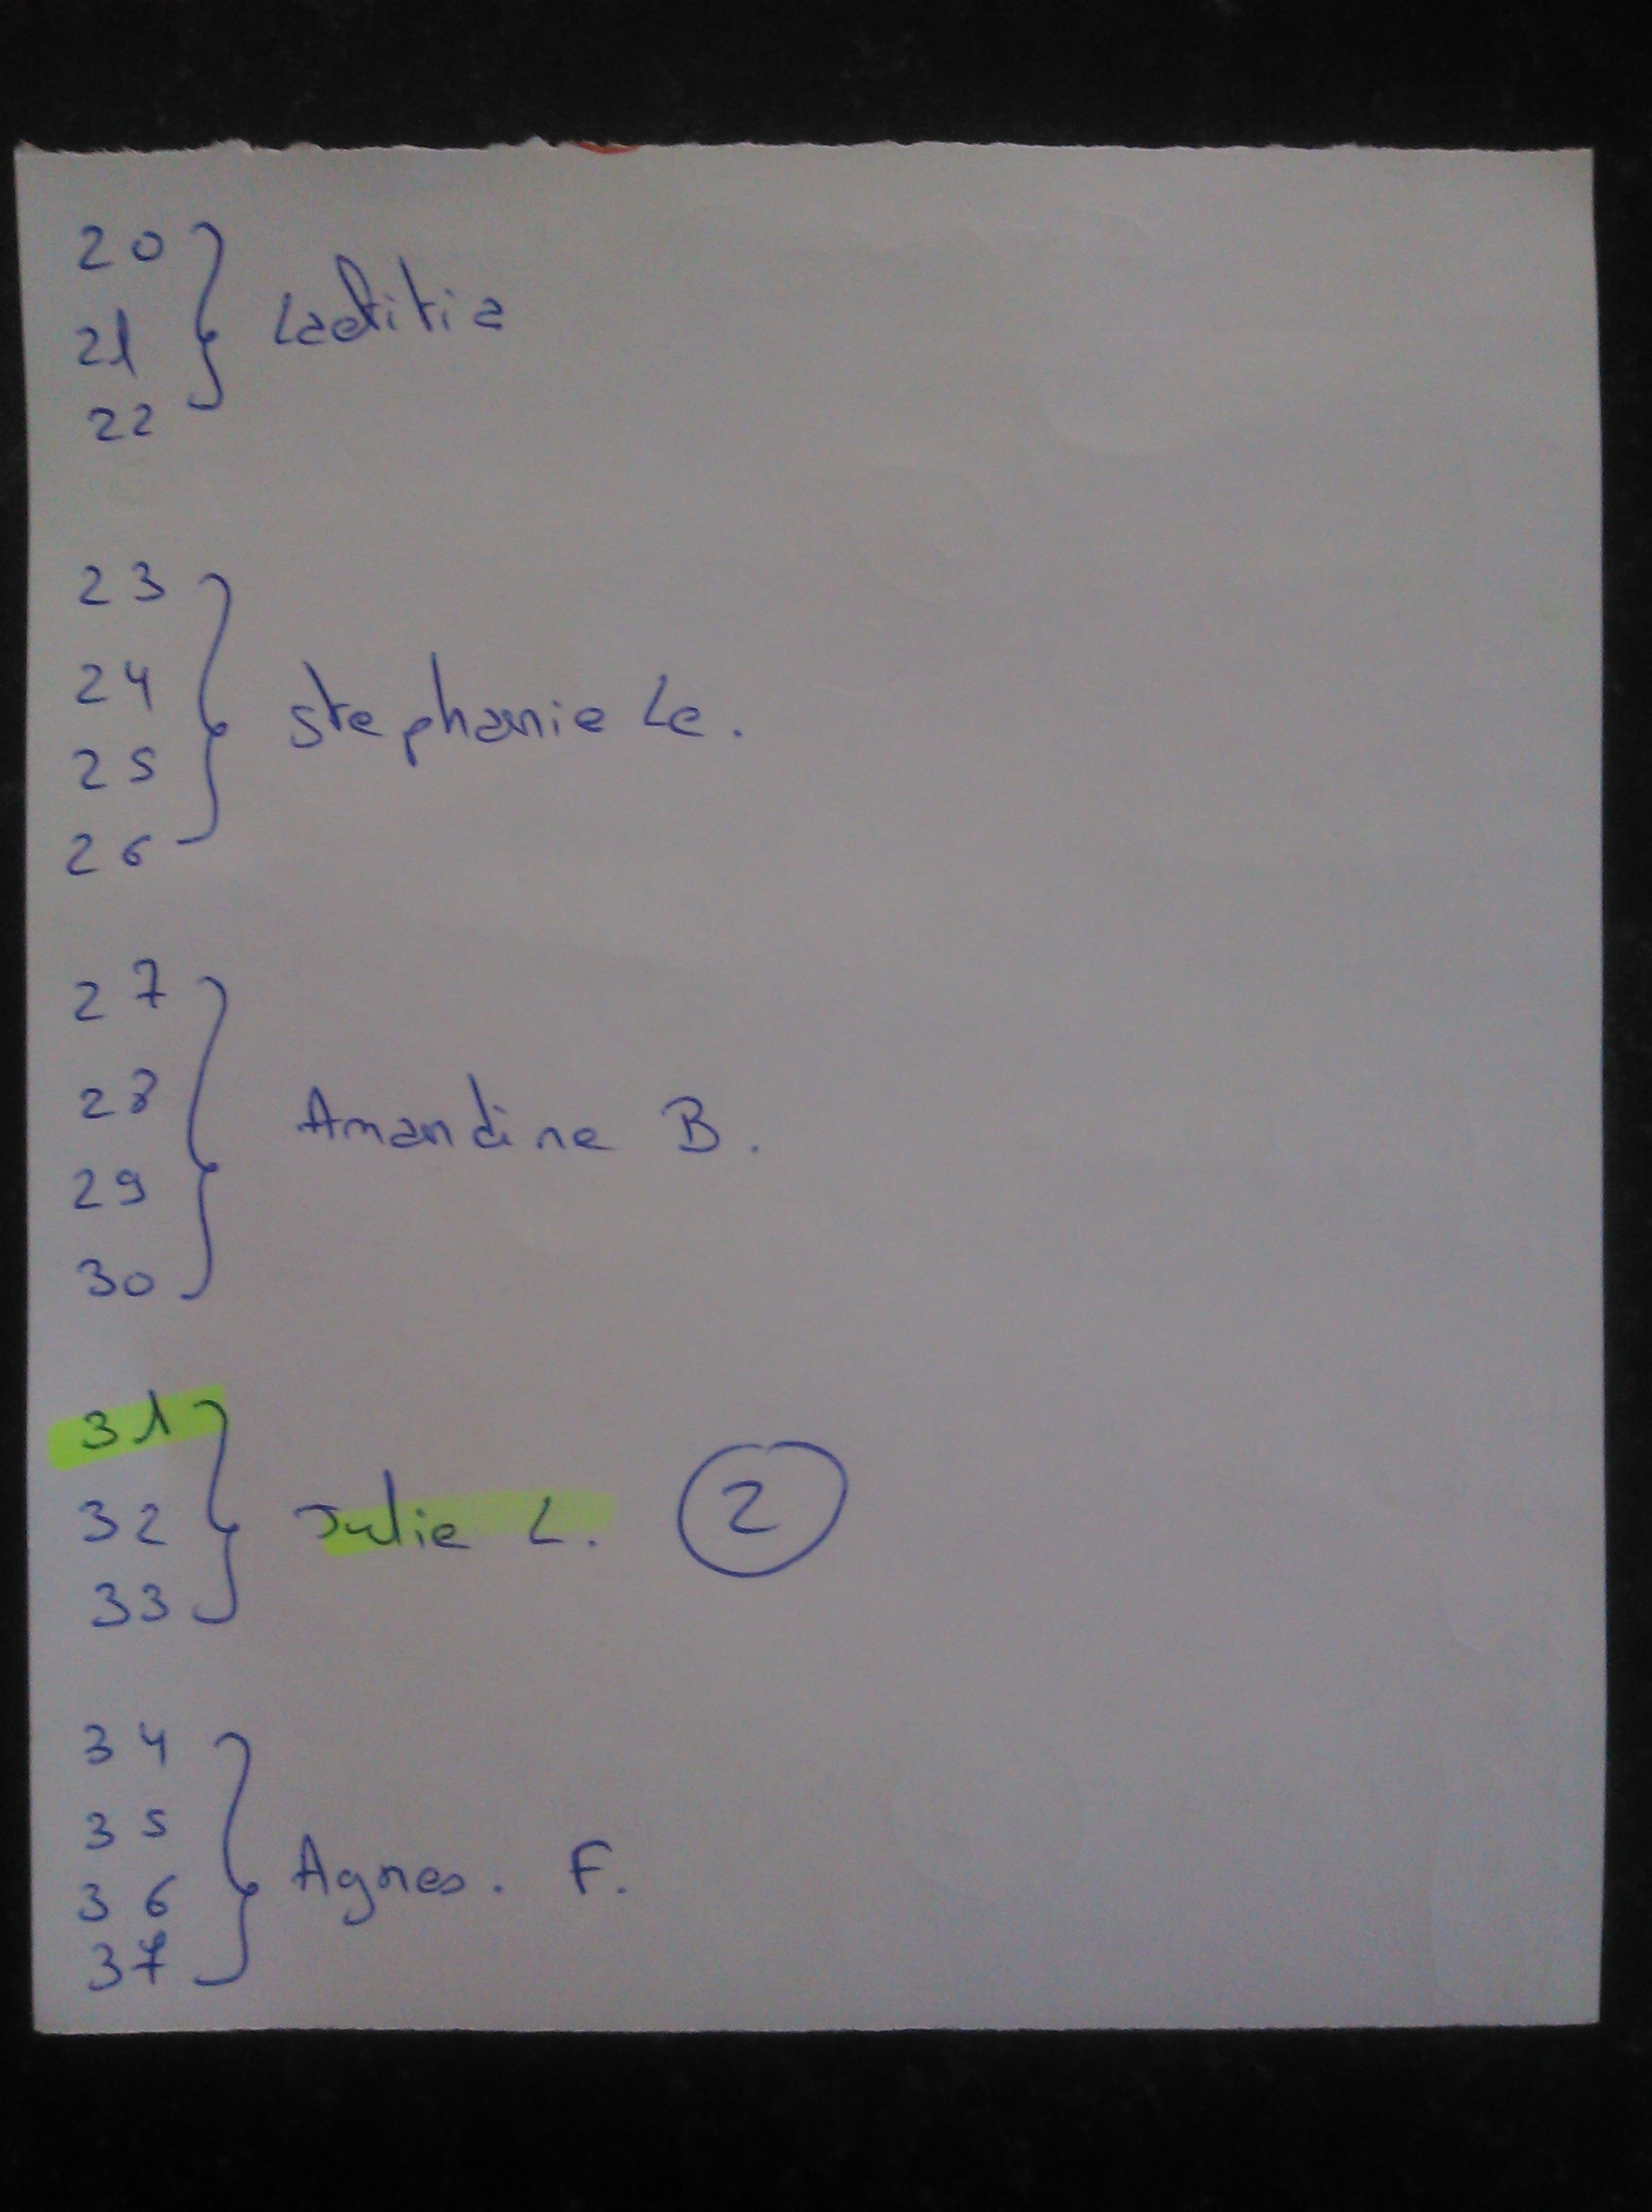 20
21
Laetitia
22
23
24
stephanie Le.
25
26
27
28
Amandine B.
29
30
31
32
Julie L. 2
33
34
35
Agnes. F.
36
37